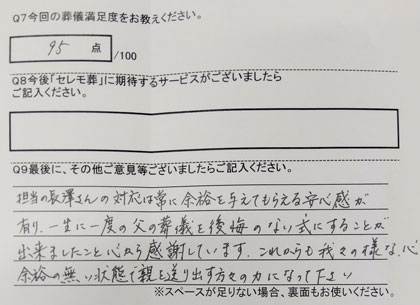 Q7今回の葬儀満足度をお教えください。
95 点 /100
Q8今後「セレモ葬」に期待するサービスがございましたら
ご記入ください。
Q9最後に、その他ご意見等ございましたらご記入ください。
担当の長澤さんの対応は常に余裕を与えてもらえる安心感が
有り、一生に一度の父の葬儀を後悔のない式にすることが
出来ましたこと心から感謝しています。これからも我々の様な、心
余裕の無い状態で親を送り出す方々の力になって下さい
※スペースが足りない場合、裏面もお使いください。